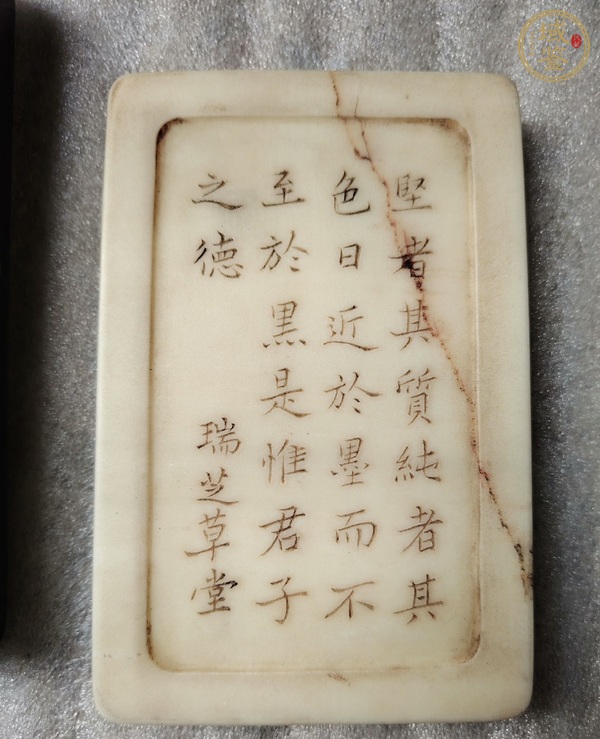 堅者其質純者其
色日近於墨而不
至於黒是惟君子
之德
瑞芝草堂